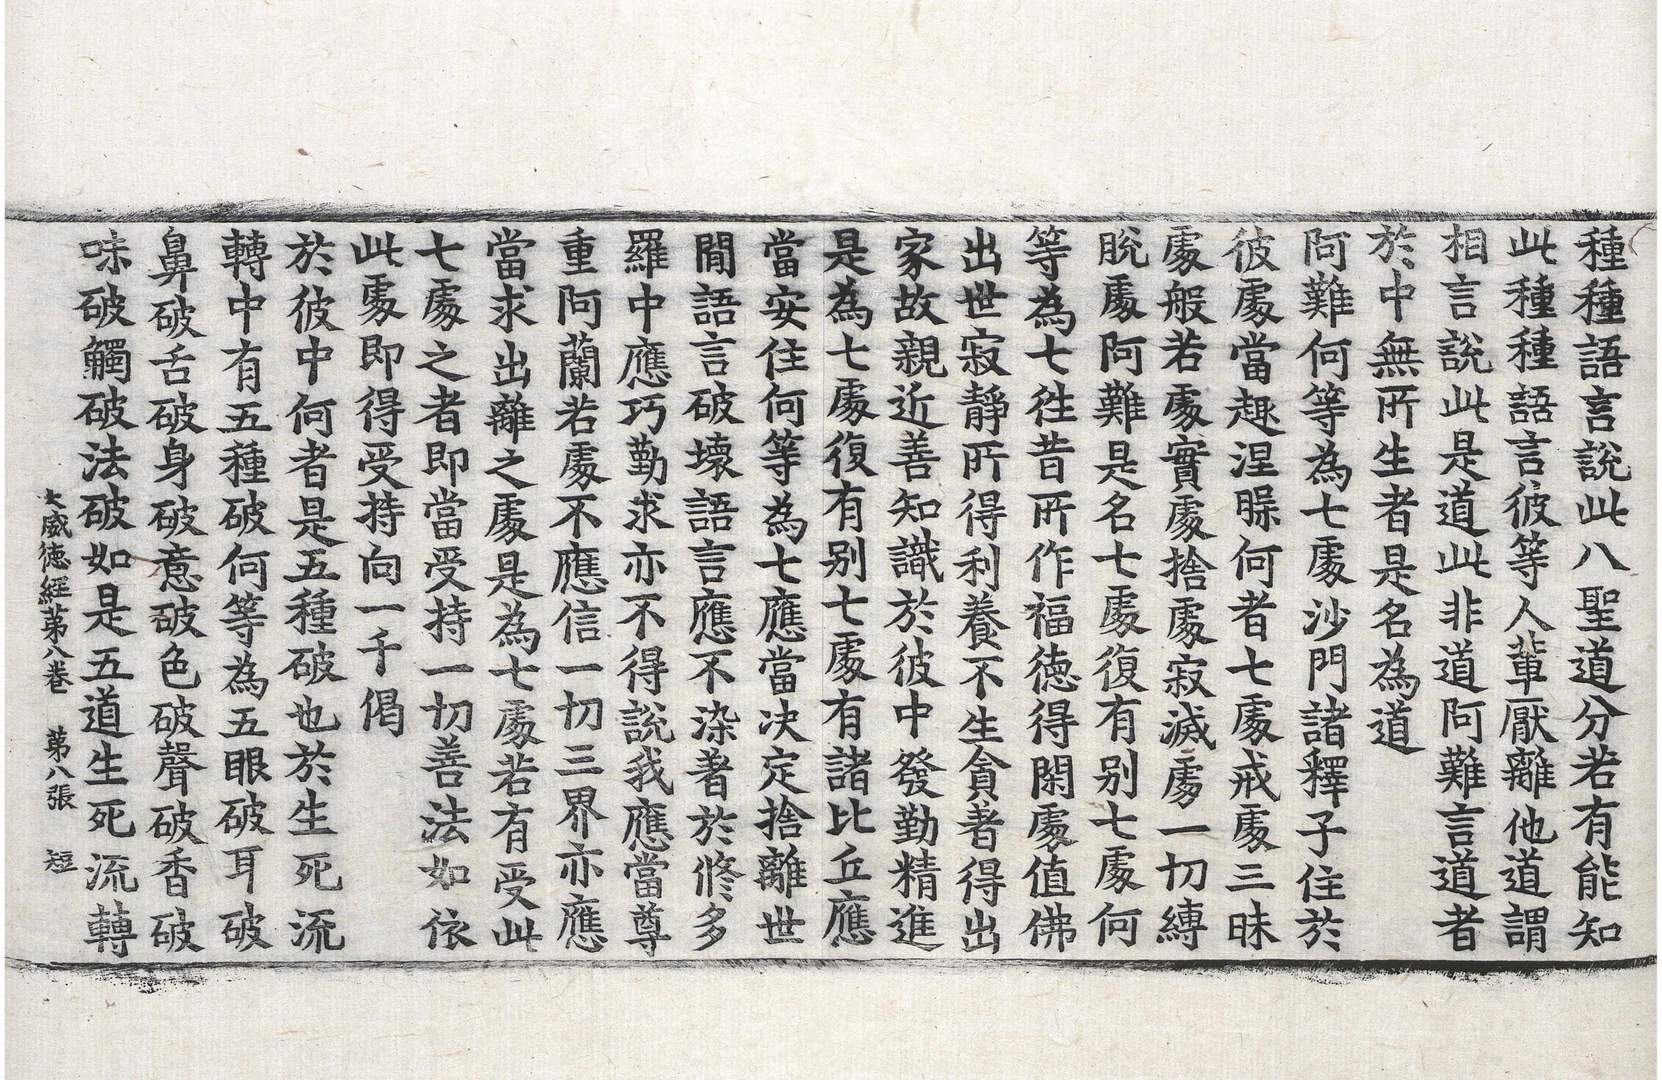 種種語言說此八聖道分若有能知
此種種語言彼等人輩厭離他道謂
相言說此是道此非道阿難言道者
於中無所生者是名為道
阿難何等為七處沙門諸釋子住於
彼處當趣涅槃何者七處戒處三昧
處般若處實處捨處寂滅處一切縛
脫處阿難是名七處復有別七處何
等為七往昔所作福德得閑處值佛
出世寂靜所得利養不生貪著得出
家故親近善知識於彼中發勤精進
是為七處復有別七處有諸比丘應
當安住何等為七應當決定捨離世
間語言破壞語言應不染著於修多
羅中應巧勤求亦不得說我應當尊
重阿蘭若處不應信一切三界亦應
當求出離之處是為七處若有受此
七處之者即當受持一切善法如依
此處即得受持向一千偈
於彼中何者是五種破也於生死流
轉中有五種破何等為五眼破耳破
鼻破舌破身破意破色破聲破香破
味破觸破法破如是五道生死流轉
大威德經第八卷　第八張　短